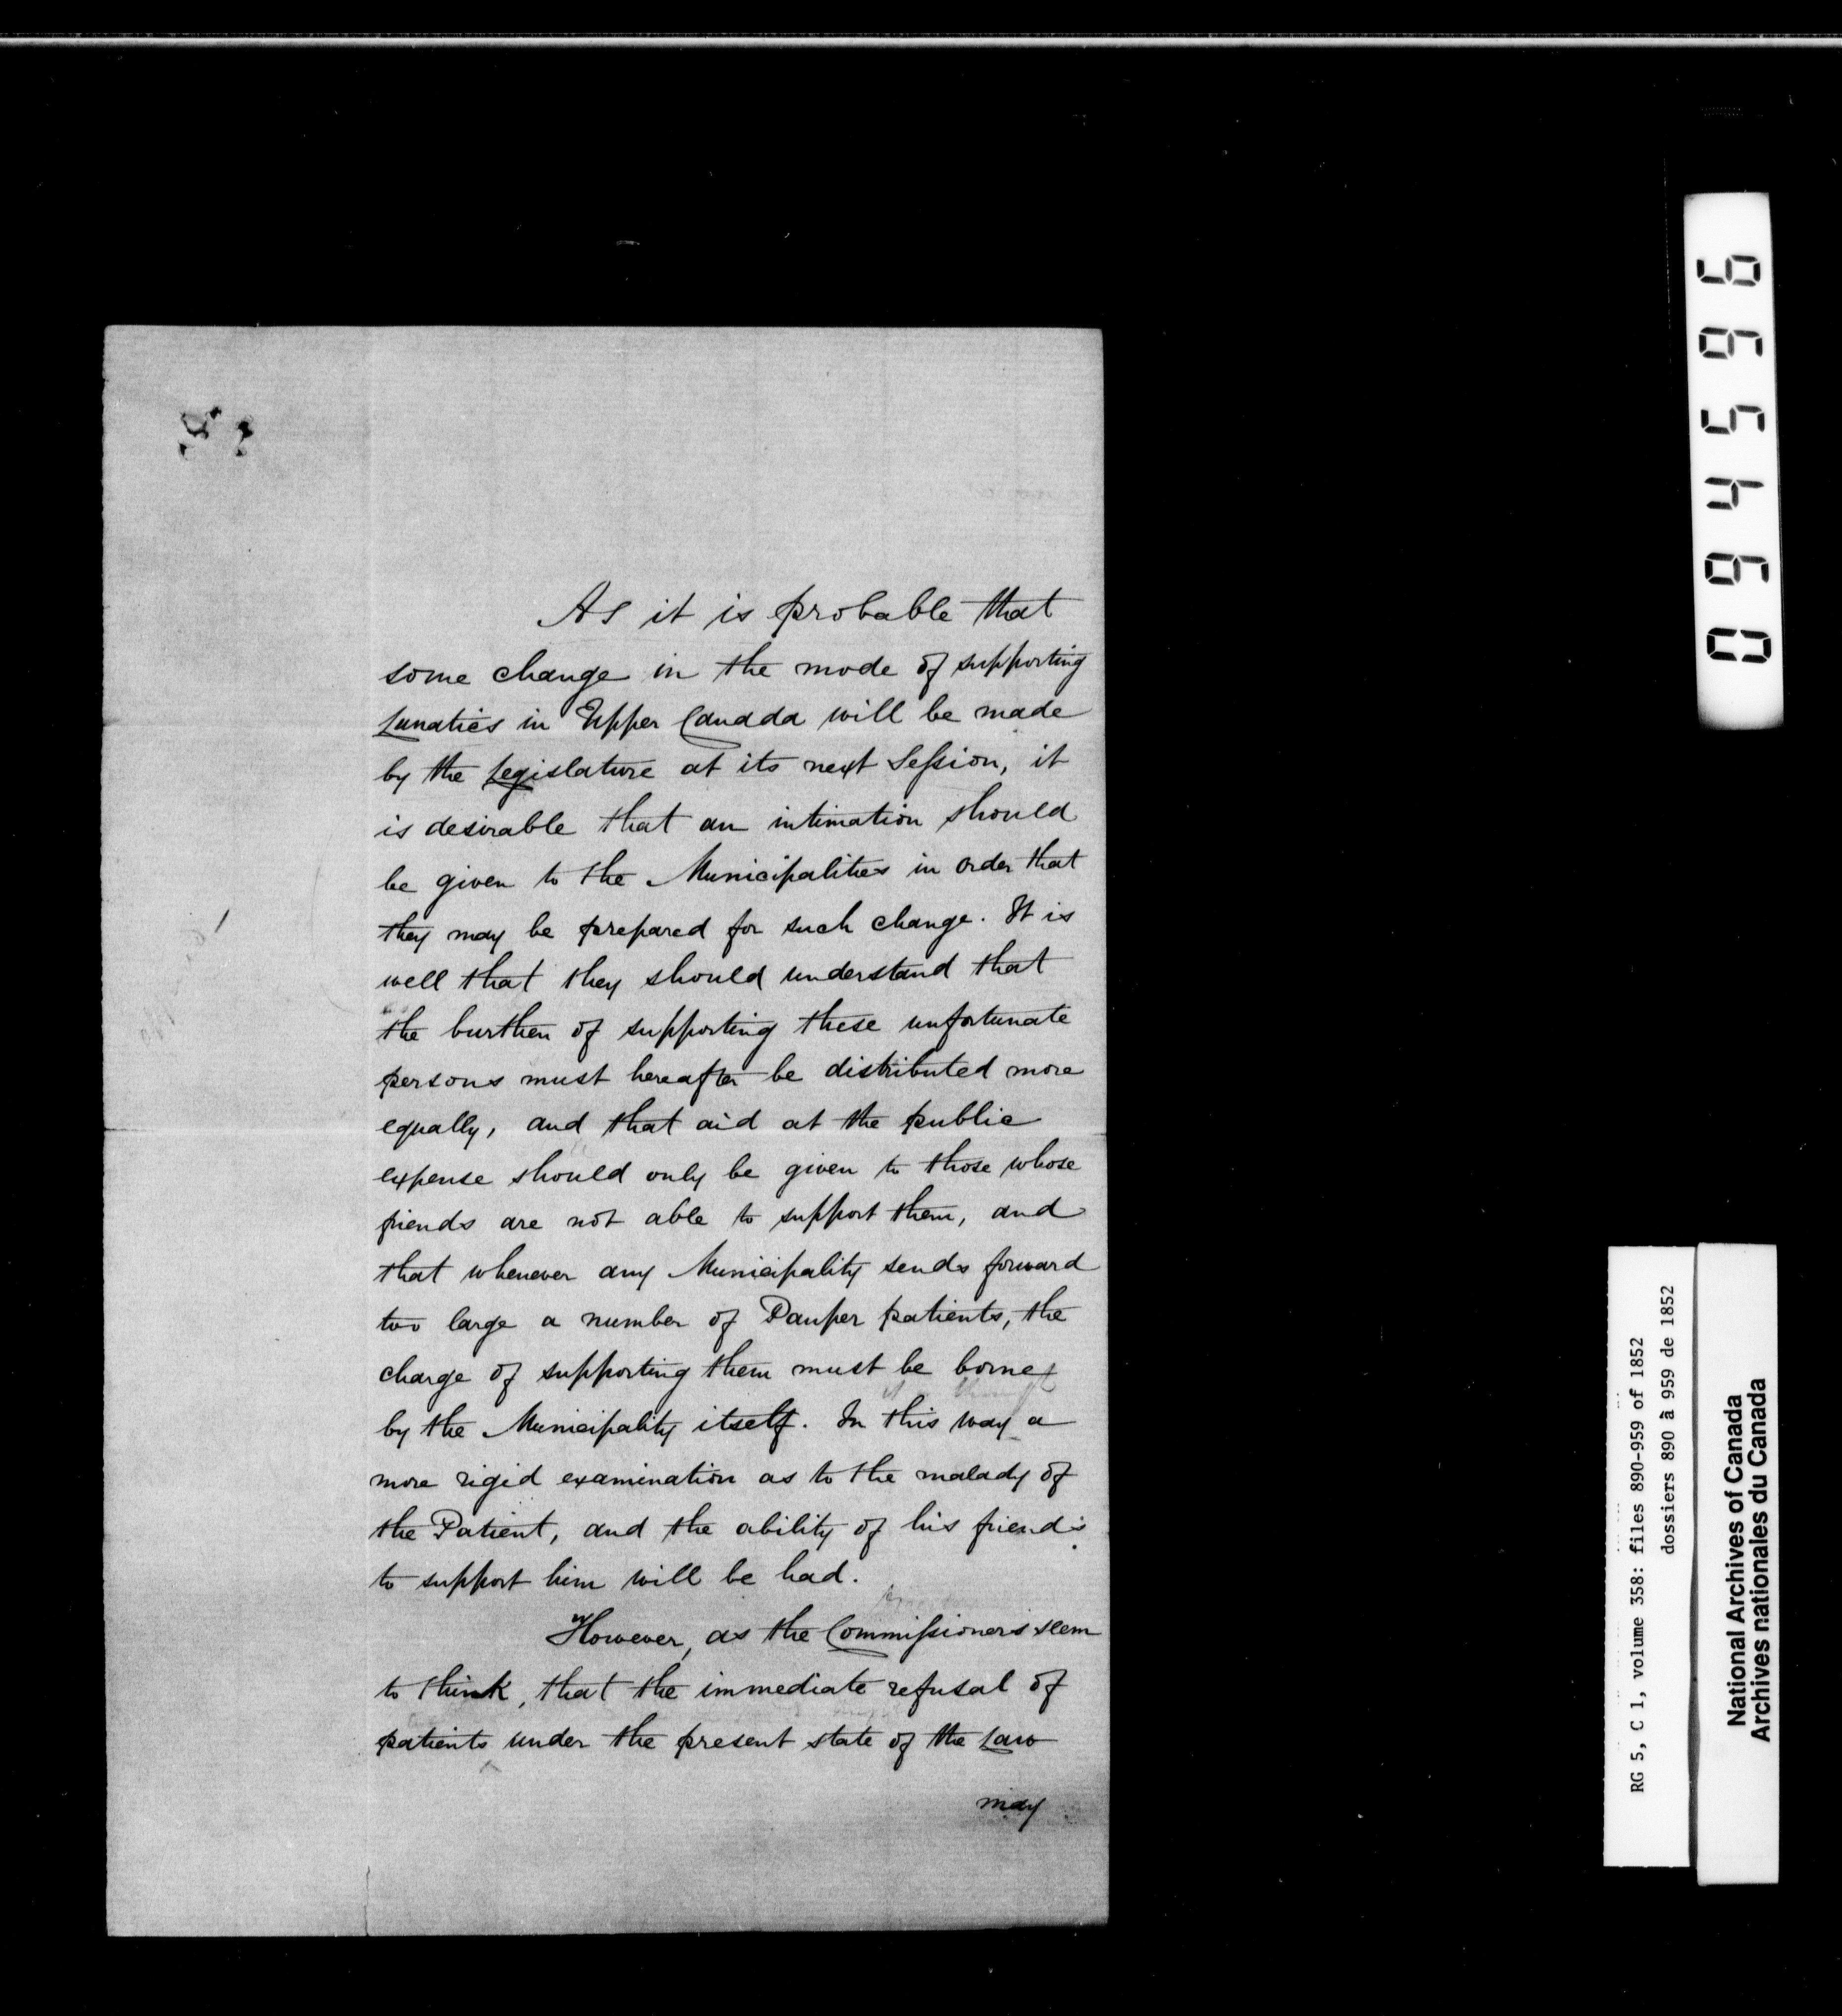 As it is probable that
some change in the mode of supporting
Lunatics in Upper Canada will be made
by the Legislature at its next Session, it
is desirable that an intimation should
be given to the Municipalities in order that
they may be prepared for such change. It is
well that they should understand that
the burthen of supporting these unfortunate
persons must hereafter be distributed more
equally, and that aid at the public
expense should only be given to those whose
friends are not able to support them, and
that whenever any Municipality sends forward
too large a number of Pauper patients, the
charge of supporting them must be borne
by the Municipality itself. In this way a
more rigid examination as to the malady of
the Patient, and the ability of his friends
to support him will be had.
However, as the Commissioners seem
to think, that the immediate refusal of
patients under the present state of the Law
may
094596
RG 5, C 1, volume 358: files 890-959 of 1852
dossiers 890 à 959 de 1852
National Archives of Canada
Archives nationales du Canada